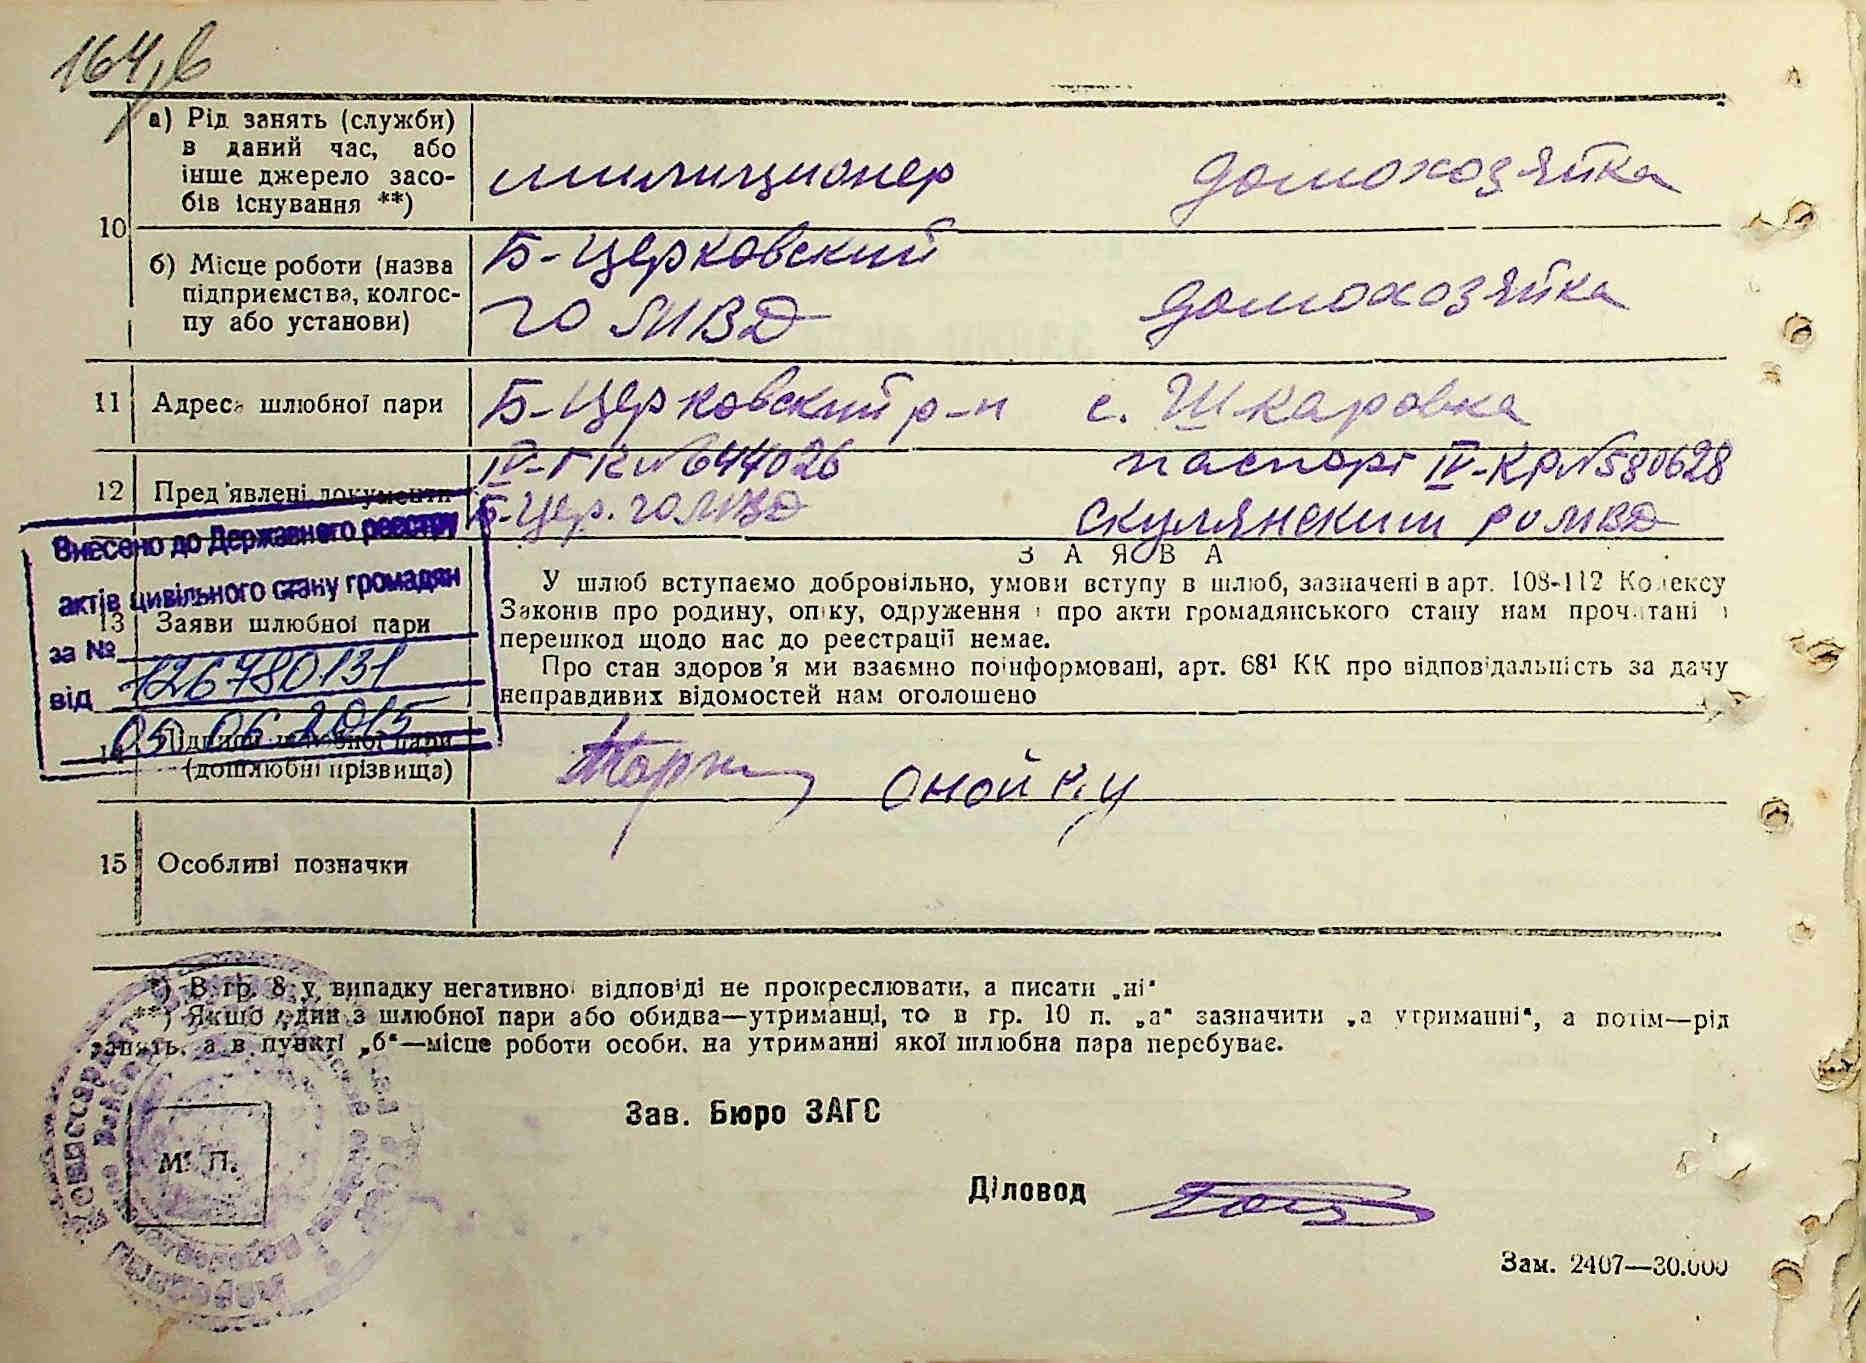 164,в
а) Рід занять (служби)
в даний час, або
інше джерело засо-
бів існування **)
милиционер домохозяйка
10
б) Місце роботи (назва
підприємства, колгос-
пу або установи)
Б-Церковский
ГО МВД домохозяйка
11 Адреса шлюбної пари Б-Церковский р-н с. Шкаровка
12 Пред'явлені документи IV-ГК №644026 паспорт IV-КР №580628
Б-Цер. ГО МВД Скулянским РО МВД
Внесено до Державного реєстру
актів цивільного стану громадян
за № 126780131
від 05 06 2015
13 Заяви шлюбної пари
З А Я В А
У шлюб вступаємо добровільно, умови вступу в шлюб, зазначені в арт. 108-112 Кодексу
Законів про родину, опіку, одруження і про акти громадянського стану нам прочитані і
перешкод щодо нас до реєстрації немає.
Про стан здоров'я ми взаємно поінформовані, арт. 68¹ КК про відповідальність за дачу
неправдивих відомостей нам оголошено
14 Підписи шлюбної пари
(дошлюбні прізвища)
Оной
15 Особливі позначки
*) В гр. 8 у випадку негативної відповіді не прокреслювати, а писати „ні“
**) Якщо один з шлюбної пари або обидва—утриманці, то в гр. 10 п. „а“ зазначити „а утриманні“, а потім—рід
занять, а в пункті „б“—місце роботи особи, на утриманні якої шлюбна пара перебуває.
Зав. Бюро ЗАГС
М. П.
Діловод
Зам. 2407—30.000